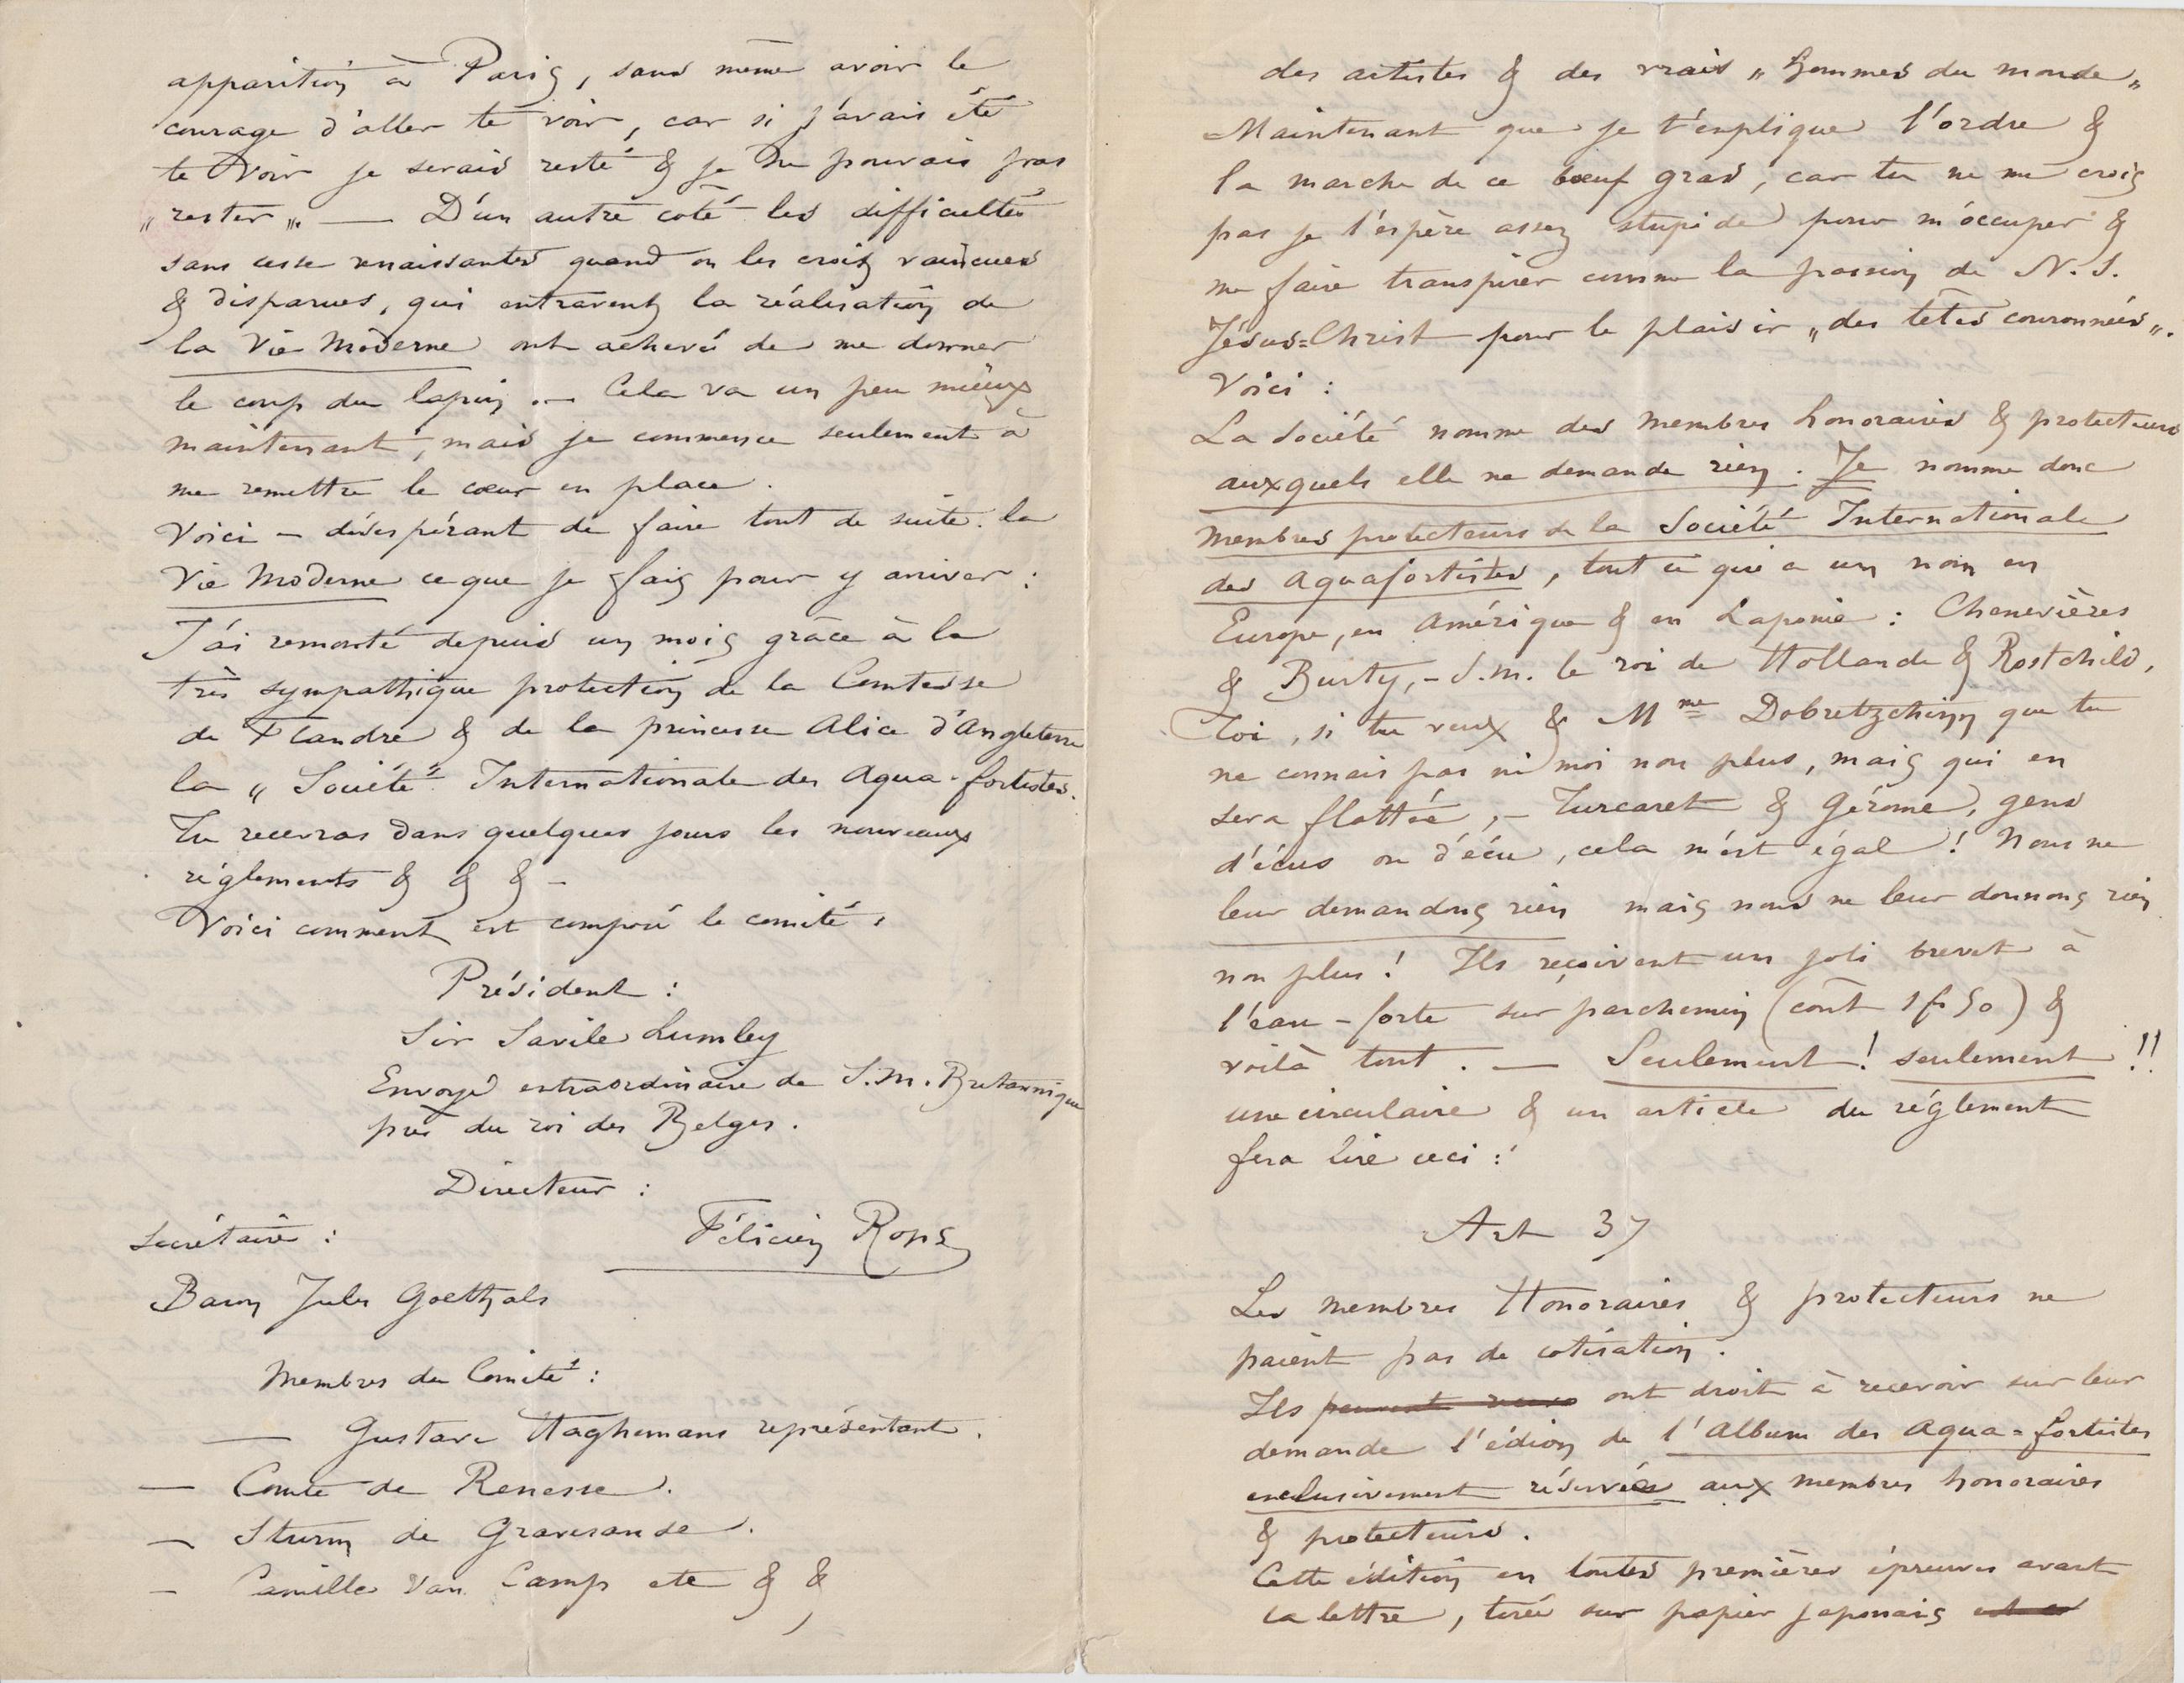 apparition à Paris, sans même avoir le
courage d'aller te voir, car si j'avais été
te voir je serais resté & je ne pouvais pas
„rester„. — D'un autre coté les difficultés
sans cesse renaissantes quand on les croit vaincues
& disparues, qui entravent la réalisation de
la Vie Moderne ont achevé de me donner
le coup du lapin. — Cela va un peu mieux
maintenant, mais je commence seulement à
me remettre le cœur en place.
Voici – désespérant de faire tout de suite la
Vie Moderne ce que je fais pour y arriver :
J'ai remonté depuis un mois grâce à la
très sympathique protection de la Comtesse
de Flandre & de la princesse Alice d'Angleterre
la „ Société Internationale des Aqua-fortistes.
Tu recevras dans quelques jours les nouveaux
réglements & & & –
Voici comment est composé le comité :
Président :
Sir Savile Lumley
Envoyé extraordinaire de S.M. Britannique
près du roi des Belges.
Directeur :
Félicien Rops
Secrétaire :
Baron Jules Goethals
Membres du Comité :
— Gustave Haghemans représentant.
— Comte de Renesse.
— Sturm de Gravesande.
– Camille Van Camp etc & &
des artistes & des vrais „ hommes du monde„
Maintenant que je t'explique l'ordre &
la marche de ce bœuf gras, car tu ne me crois
pas je l'espère assez stupide pour m'occuper &
me faire transpirer comme la passion de N.S.
Jésus=Christ pour le plaisir „des têtes couronnées„.
Voici :
La Société nomme des membres honoraires & protecteurs
auxquels elle ne demande rien. Je nomme donc
membres protecteurs de la Société Internationale
des Aquafortistes, tout ce qui a un nom en
Europe, en Amérique & en Laponie : Chenevières
& Burty, – S.M. le roi de Hollande & Rostchild,
Toi, si tu veux & Mme Dobretzchinn que tu
ne connais pas ni moi non plus, mais qui en
sera flattée, – Turcaret & Gérome, gens
d'écus ou d'écu, cela m'est égal ! Nous ne
leur demandons rien mais nous ne leur donnons rien
non plus ! Ils reçoivent un joli brevet à
l'eau-forte sur parchemin (coût 1 fr 50) &
voilà tout. — Seulement ! seulement !!
une circulaire & un article du réglement
fera lire ceci :
Art 37
Les membres Honoraires & protecteurs ne
paient pas de cotisation.
Ils ont droit à recevoir sur leur
demande l'édion de l'Album des Aqua=fortistes
exclusivement réservée aux membres honoraires
& protecteurs.
Cette édition en toutes premières épreuves avant
la lettre, tirée sur papier japonais